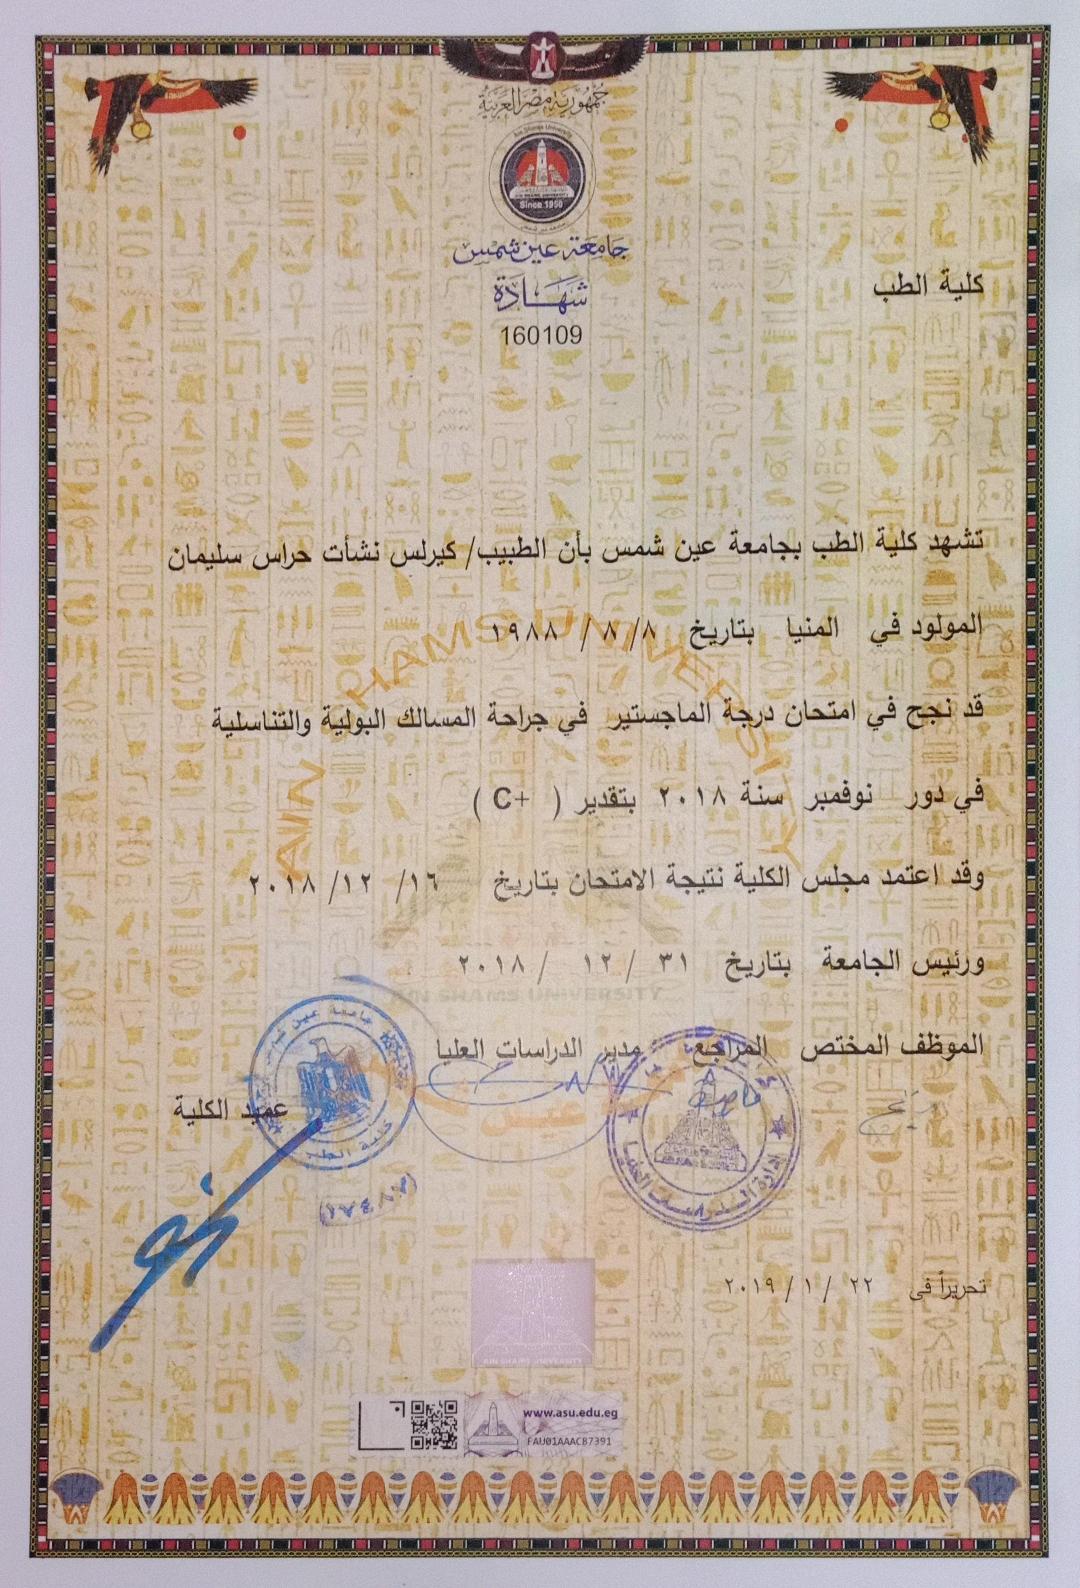 جمهورية مصر العربية
Ain Shams University
AIN SHAMS UNIVERSITY
Since 1950
جامعة عين شمس
جامعة عين شمس
شهادة
160109
كلية الطب
تشهد كلية الطب بجامعة عين شمس بأن الطبيب/ كيرلس نشأت حراس سليمان
المولود في المنيا بتاريخ ٨/ ٨ / ١٩٨٨
قد نجح في امتحان درجة الماجستير في جراحة المسالك البولية والتناسلية
في دور نوفمبر سنة ٢٠١٨ بتقدير ( C+ )
وقد اعتمد مجلس الكلية نتيجة الامتحان بتاريخ ١٦/ ١٢ /٢٠١٨
ورئيس الجامعة بتاريخ ٣١ / ١٢ / ٢٠١٨
AIN SHAMS UNIVERSITY
AIN SHAMS UNIVERSITY
عين
الموظف المختص المراجع مدير الدراسات العليا
عميد الكلية
جامعة عين شمس
كلية الطب
إدارة الدراسات العليا
تحريراً فى ٢٢ / ١ / ٢٠١٩
AIN SHAMS UNIVERSITY
www.asu.edu.eg
FAU01AAACB7391